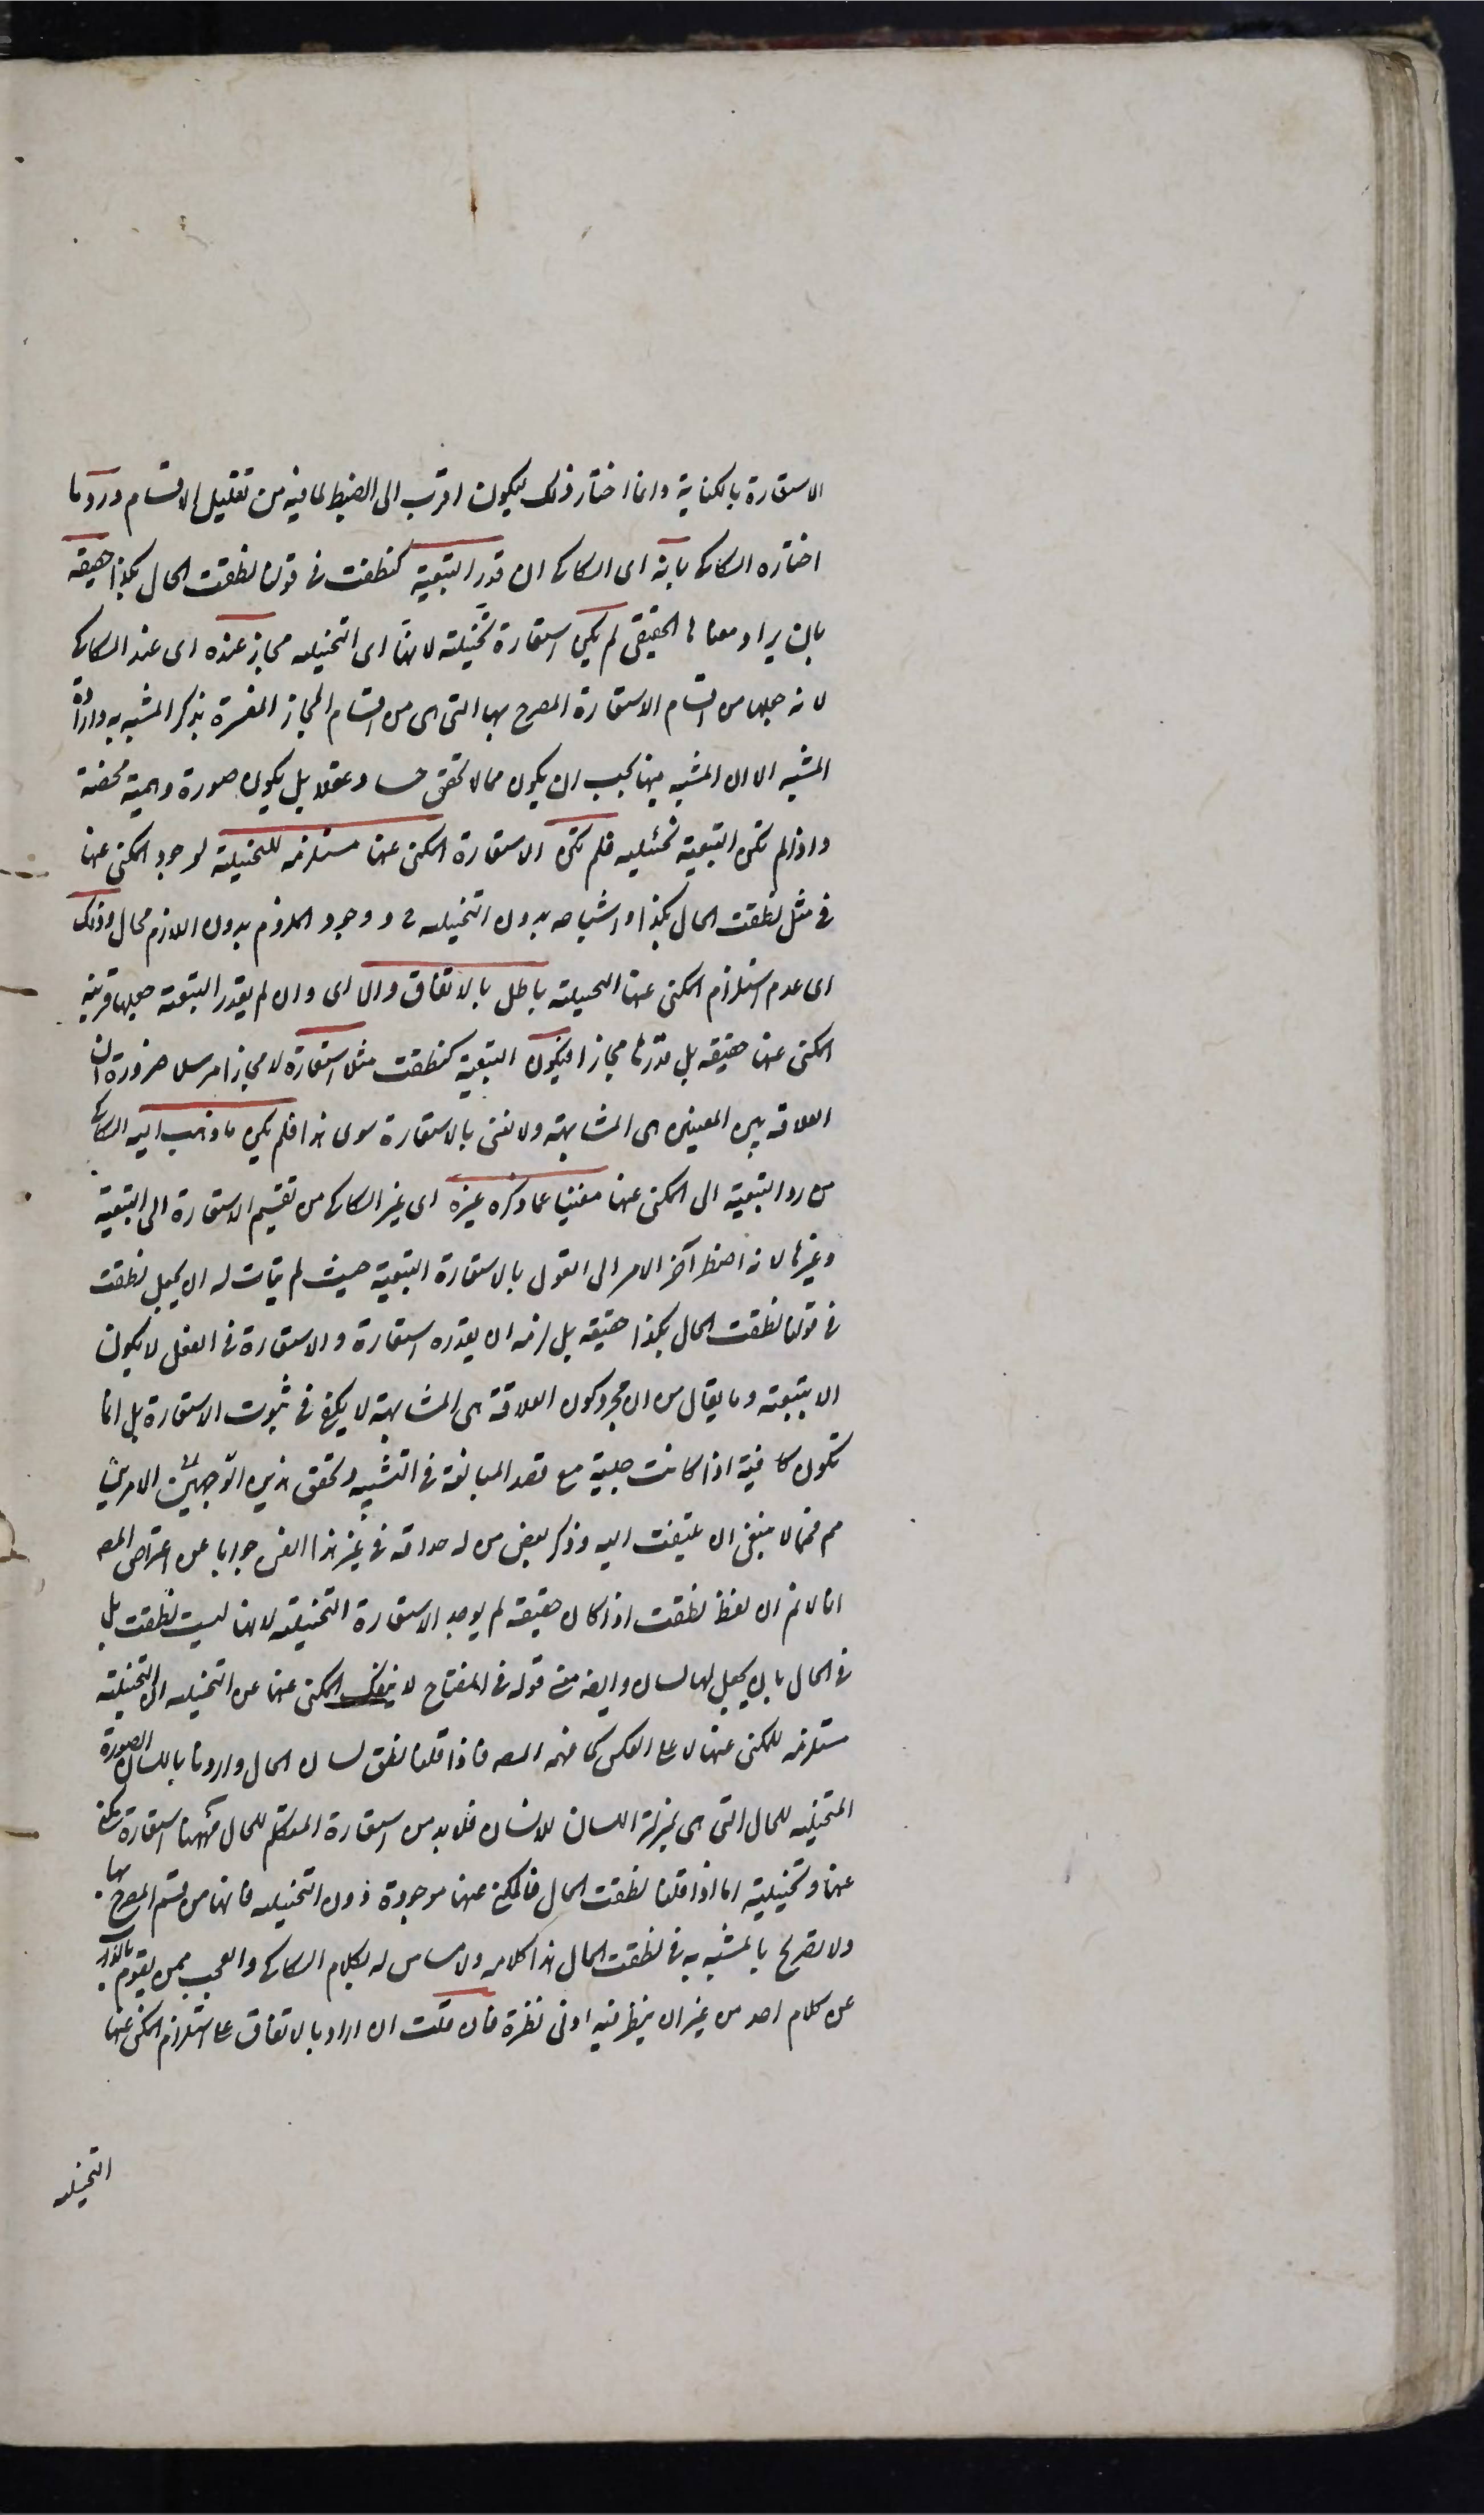 الاستعارة بالكناية وانما اختار ذلك ليكون اقرب الى الضبط لما فيه من تقليل الاقسام ورد ما
اختاره السكاكى بانه اى السكاكى ان قدر التبعية كنطقت فى قولنا نطقت الحال بكذا حقيقة
بان يراد معناها الحقيقى لم يكن استعارة تخييلية لانها اى التخييلية مجاز عنده اى عند السكاكى
لانه جعلها من اقسام الاستعارة المصرح بها التى هى من اقسام المجاز المفسرة بذكر المشبه به وارادة
المشبه الا ان المشبه فيها يجب ان يكون مما لا تحقق حسا وعقلا بل يكون صورة وهمية محضة
واذا لم تكن التبعية تخئيلية فلم تكن الاستعارة المكنى عنها مستلزمة للتخييلية لوجود المكنى عنها
فى مثل نطقت الحال بكذا واشباهه بدون التخييلية ح ووجود الملزوم بدون اللازم محال وذلك
اى عدم استلزام المكنى عنها التخييلية باطل بالاتفاق والا اى وان لم يقدر التبعية جعلها قرينة
المكنى عنها حقيقة بل قدرها مجازا فيكون التبعية كنطقت مثلا استعارة لا مجازا مرسلا ضرورة ان
العلاقة بين المعنيين هى المشابهة ولا نعنى بالاستعارة سوى هذا فلم يكن ما ذهب اليه السكاكى
من رد التبعية الى المكنى عنها مغنيا عما ذكره غيره اى غير السكاكى من تقسيم الاستعارة الى التبعية
وغيرها لانه اضطر آخر الامر الى القول بالاستعارة التبعية حيث لم يتات له ان يجعل نطقت
فى قولنا نطقت الحال بكذا حقيقة بل لزمه ان يقدره استعارة والاستعارة فى الفعل لا يكون
الا تبعية وما يقال من ان مجرد كون العلاقة هى المشابهة لا يكفى فى ثبوت الاستعارة بل انما
تكون كافية اذا كانت جلية مع قصد المبالغة فى التشبيه وتحقق هذين الامرين
مم فمما لا ينبغى ان يلتفت اليه وذكر بعض من له حذاقة فى غير هذا الفن جوابا عن اعتراض المصـ
انا لا نم ان لفظ نطقت اذا كان حقيقة لم يوجد الاستعارة التخييلية لانها ليست نطقت بل
فى الحال بان يجعل لها لسان وايضا معنى قوله فى المفتاح لا ينفك المكنى عنها عن التخييلية ان التخييلية
مستلزمة للمكنى عنها لا على العكس كما فهمه المصـ فاذا قلنا نطق لسان الحال واردنا باللسان الصورة
المتخيلة للحال التى هى بمنزلة اللسان للانسان فلابد من استعارة المتكلم للحال فههنا استعارة مكنى
عنها وتخييلية اما اذا قلنا نطقت الحال فالمكنى عنها موجودة دون التخييلية فانها من قسم المصرح بها
ولا تصريح بالمشبه به فى نطقت الحال هذا كلامه ولا مساس له بكلام السكاكى والعجب ممن يقوم بالذب
عن كلام احد من غير ان ينظر فيه ادنى نظرة فان قلت ان اراد بالاتفاق على استلزام المكنى عنها
التخييلية